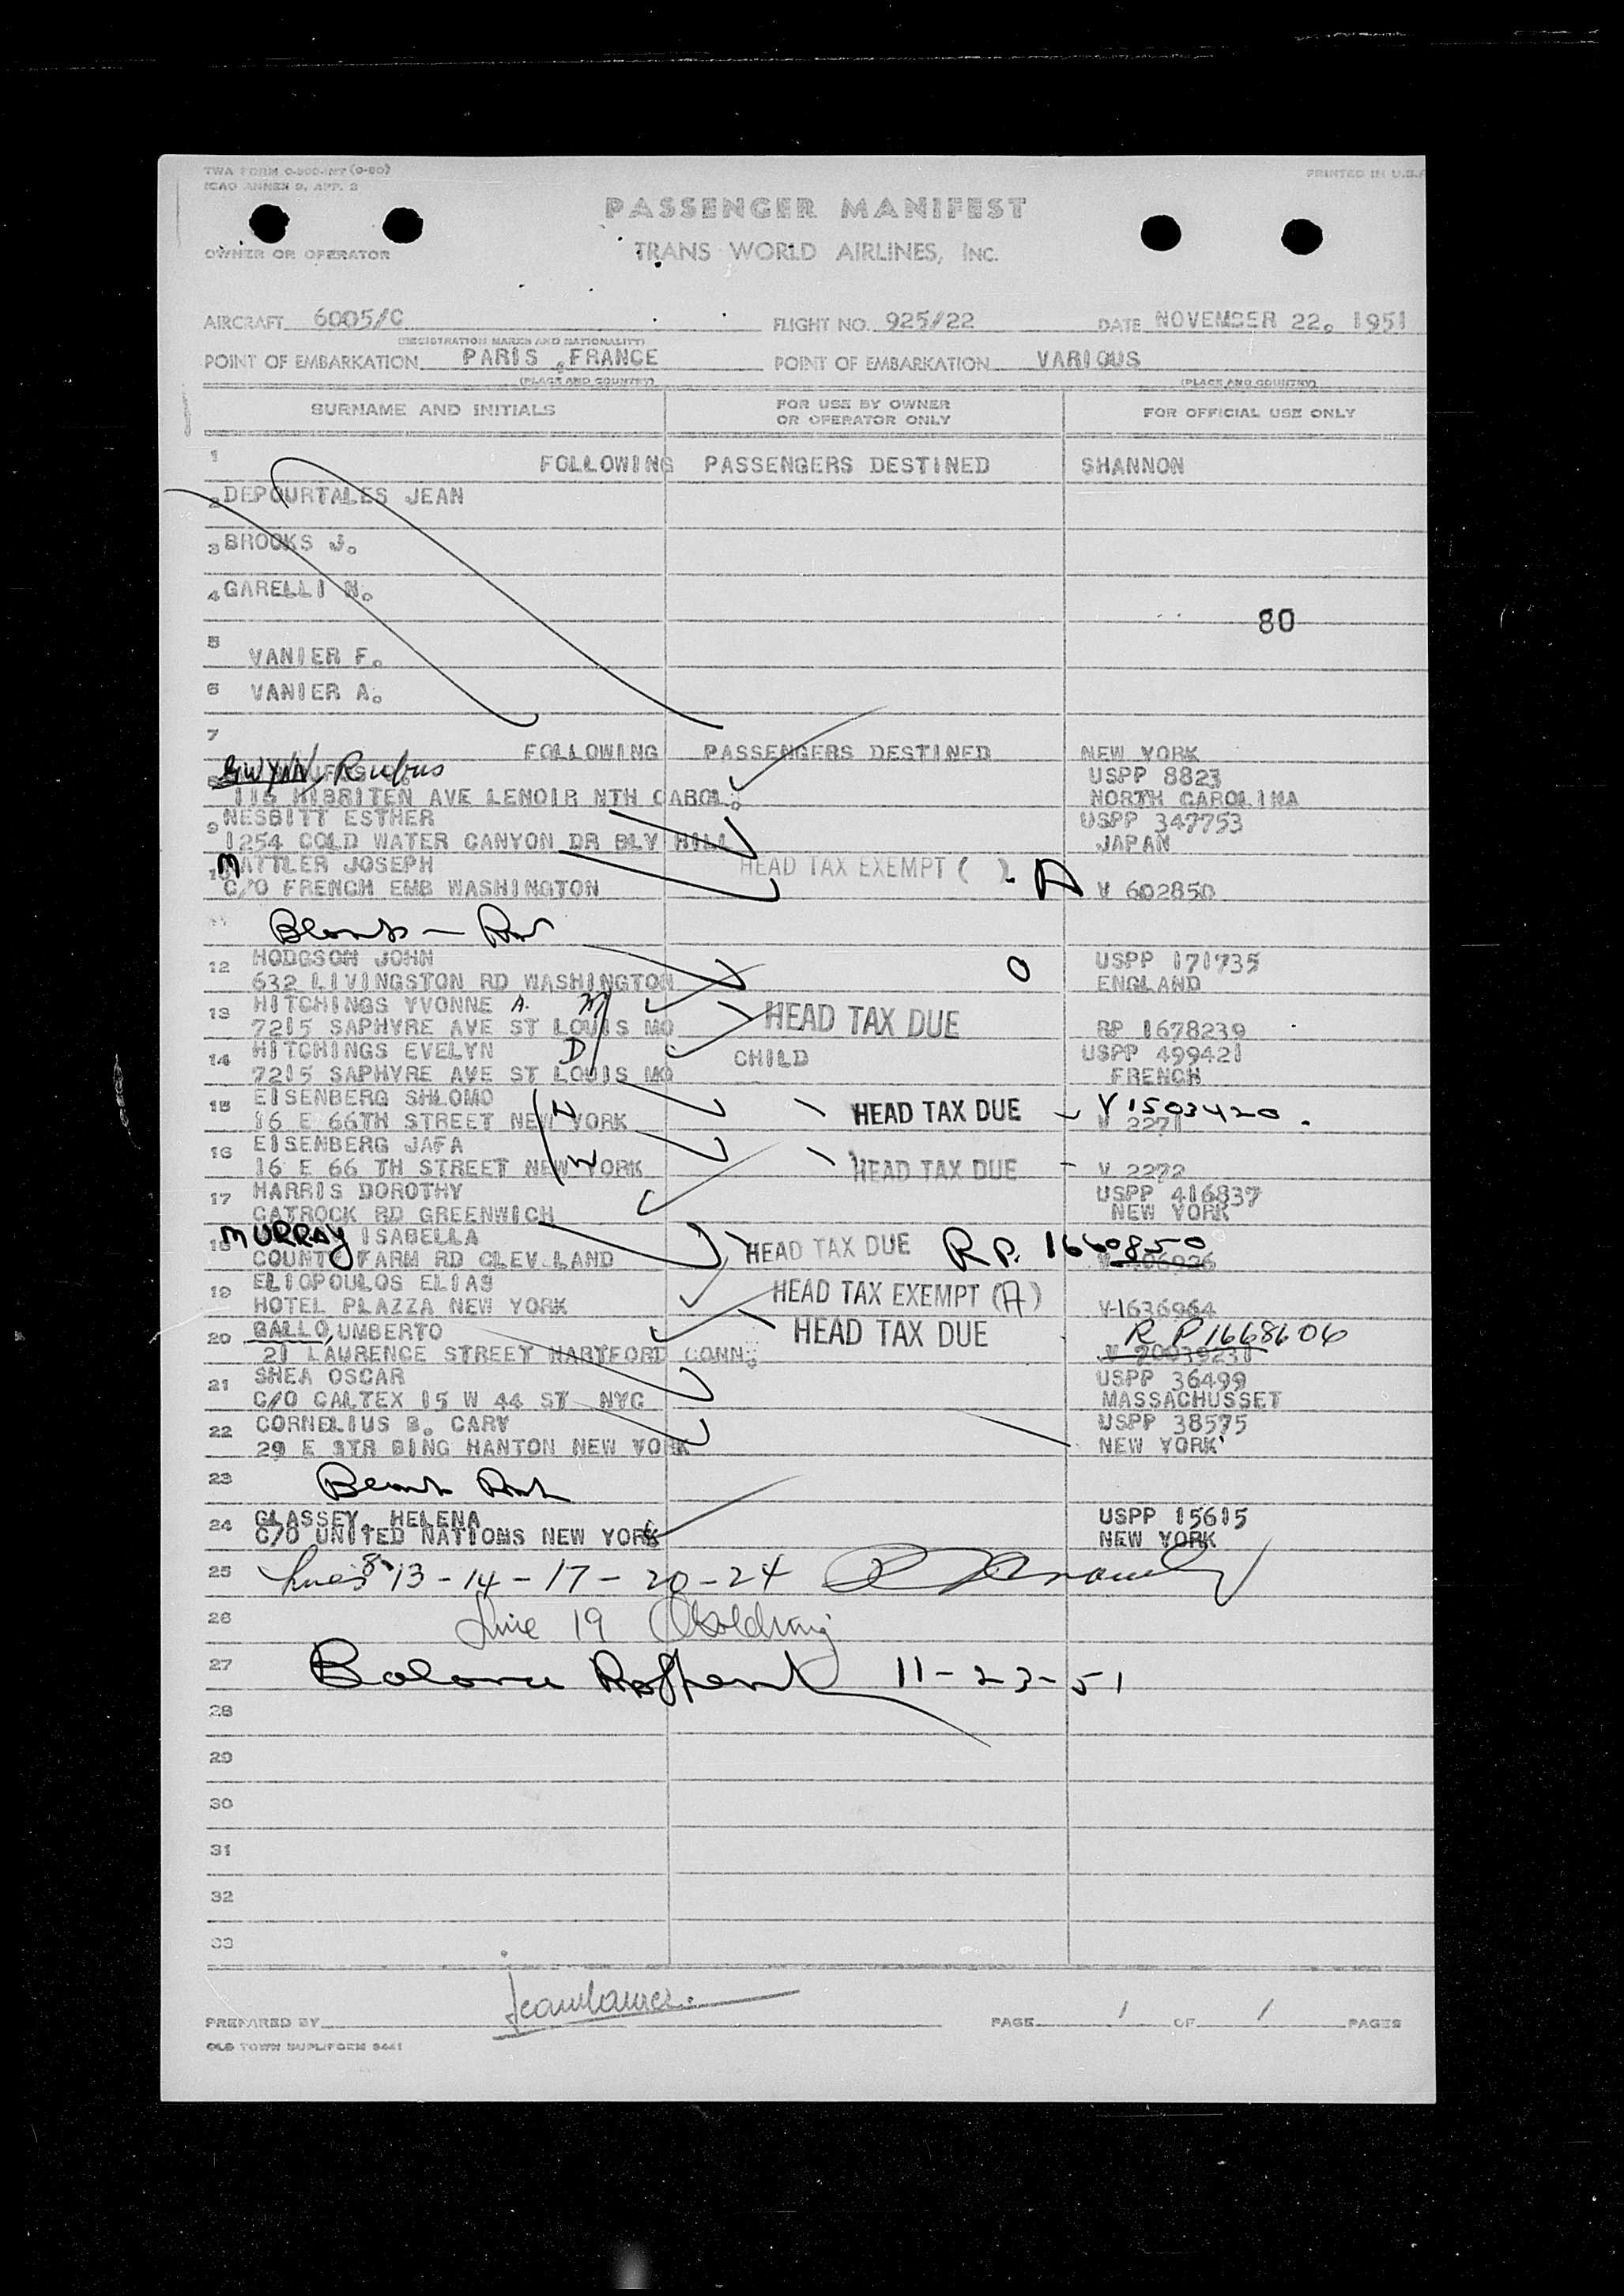 TWA FORM 0-800-INT (9-50)
ICAO ANNEX 9, APP. 2
PRINTED IN U.S.A
PASSENGER MANIFEST
TRANS WORLD AIRLINES, INC.
OWNER OR OPERATOR
AIRCRAFT 6005/C FLIGHT NO. 925/22 DATE NOVEMBER 22, 1951
(REGISTRATION MARKS AND NATIONALITY)
POINT OF EMBARKATION PARIS , FRANCE POINT OF EMBARKATION VARIOUS
(PLACE AND COUNTRY) (PLACE AND COUNTRY)
SURNAME AND INITIALS FOR USE BY OWNER OR OPERATOR ONLY FOR OFFICIAL USE ONLY
1 FOLLOWING PASSENGERS DESTINED SHANNON
2 DEPOURTALES JEAN
3 BROOKS J.
4 GARELLI N.
80
5 VANIER F.
6 VANIER A.
7 FOLLOWING PASSENGERS DESTINED NEW YORK
8 GWYNN Rufus USPP 8823
116 HIBRITEN AVE LENOIR NTH CAROL. NORTH CAROLINA
9 NESBITT ESTHER USPP 347753
1254 COLD WATER CANYON DR BLY HILL JAPAN
10 MATTLER JOSEPH HEAD TAX EXEMPT ( ) - A
C/O FRENCH EMB WASHINGTON V 602850
11 Blank
12 HODGSON JOHN O USPP 171735
632 LIVINGSTON RD WASHINGTON ENGLAND
13 HITCHINGS YVONNE A. M HEAD TAX DUE
7215 SAPHYRE AVE ST LOUIS MO RP 1678239
14 HITCHINGS EVELYN D CHILD USPP 499421
7215 SAPHYRE AVE ST LOUIS MO FRENCH
15 EISENBERG SHLOMO H HEAD TAX DUE V 1503420
16 E 66TH STREET NEW YORK V 2271
16 EISENBERG JAFA W HEAD TAX DUE
16 E 66 TH STREET NEW YORK V 2272
17 HARRIS DOROTHY USPP 416837
CATROCK RD GREENWICH NEW YORK
18 MURRAY ISABELLA HEAD TAX DUE RP. 1660850
COUNTY FARM RD CLEV.LAND
19 ELIOPOULOS ELIAS HEAD TAX EXEMPT (A)
HOTEL PLAZZA NEW YORK V-1636964
20 GALLO, UMBERTO HEAD TAX DUE R P 1668606
21 LAURENCE STREET HARTFORD CONN. V 20039231
21 SHEA OSCAR USPP 36499
C/O CALTEX 15 W 44 ST NYC MASSACHUSSET
22 CORNELIUS B. CARY USPP 38575
29 E STR BING HANTON NEW YORK NEW YORK
23 Blank
24 GLASSEY, HELENA USPP 15615
C/O UNITED NATIONS NEW YORK NEW YORK
25 Lines 8-13-14-17-20-24
26 Line 19
27 Balance 11-23-51
28
29
30
31
32
33
PREPARED BY PAGE 1 OF 1 PAGES
OLD TOWN DUPLIFORM 8441